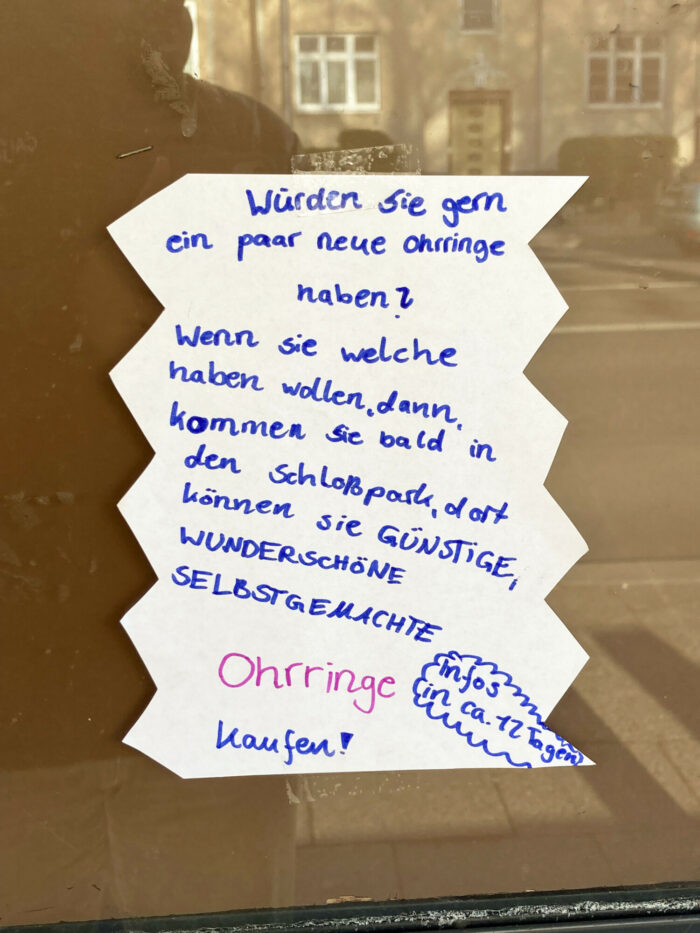 Würden sie gern
ein paar neue ohrringe
haben?
Wenn sie welche
haben wollen, dann,
kommen sie bald in
den Schloßpark, dort
können sie GÜNSTIGE,
WUNDERSCHÖNE
SELBSTGEMACHTE
Ohrringe
kaufen!
Infos
in ca. 12 Tagen